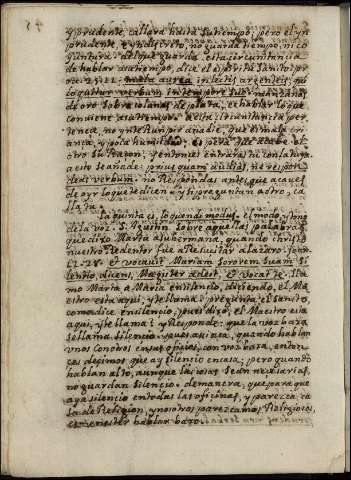 y prudente, callara hasta su tiempo; pero el yn
prudente, e yndiscreto, no guarda tiempo, ni co
yuntura. del que guarda esta circunstancia
de hablar a su tiempo, dice el espiritu Santo: pro
25. 11. mala aurea in lectis argenteis, qui
loquitur verbum in tempore suo. manzanas
de oro sobre colunas de plata, es hablar lo que
conviene a su tiempo. a esta circunstancia per
tenece, no ynterrumpir a nadie, que es mala cri
ança, y poca humildad: espera que acabe el
otro su razon, y entonces entraras tu con la tuya.
a esto se añade: prius quam audias, ne respon
deas verbum. no Respondas antes que acabes
de oyr lo que te dicen: y si preguntan a otro, ca
lla tu.
La quinta es, loquendi modus, el modo, y tono
de la voz. S. Agustin sobre aquellas palabras
que dixo Marta a su hermana, quando christo
nuestro Redentor fue a Resucitar a lazaro: Joan.
11. 28. et vocavit Mariam sororem suam si
lentio, dicens, Magister adest, et vocat te. lla
mo Marta a Maria en silencio, diziendo, el Ma
estro esta aqui, y te llama: pregunta el Santo,
como dice en silencio, pues dixo, el Maestro esta
aqui, y te llama? y Responde: que la voz baxa
se llama silencio. pues aca, quando hablan
unos con otros en sus oficios, con voz baxa, enton
ces decimos que ay silencio en casa; pero quando
hablan alto, aunque las cosas sean necesarias,
no guardan silencio. de manera, que para que
aya silencio en todas las oficinas, y parezca ca
sa de Religion, y nosotros parezcamos Religiosos,
es menester hablar baxo.